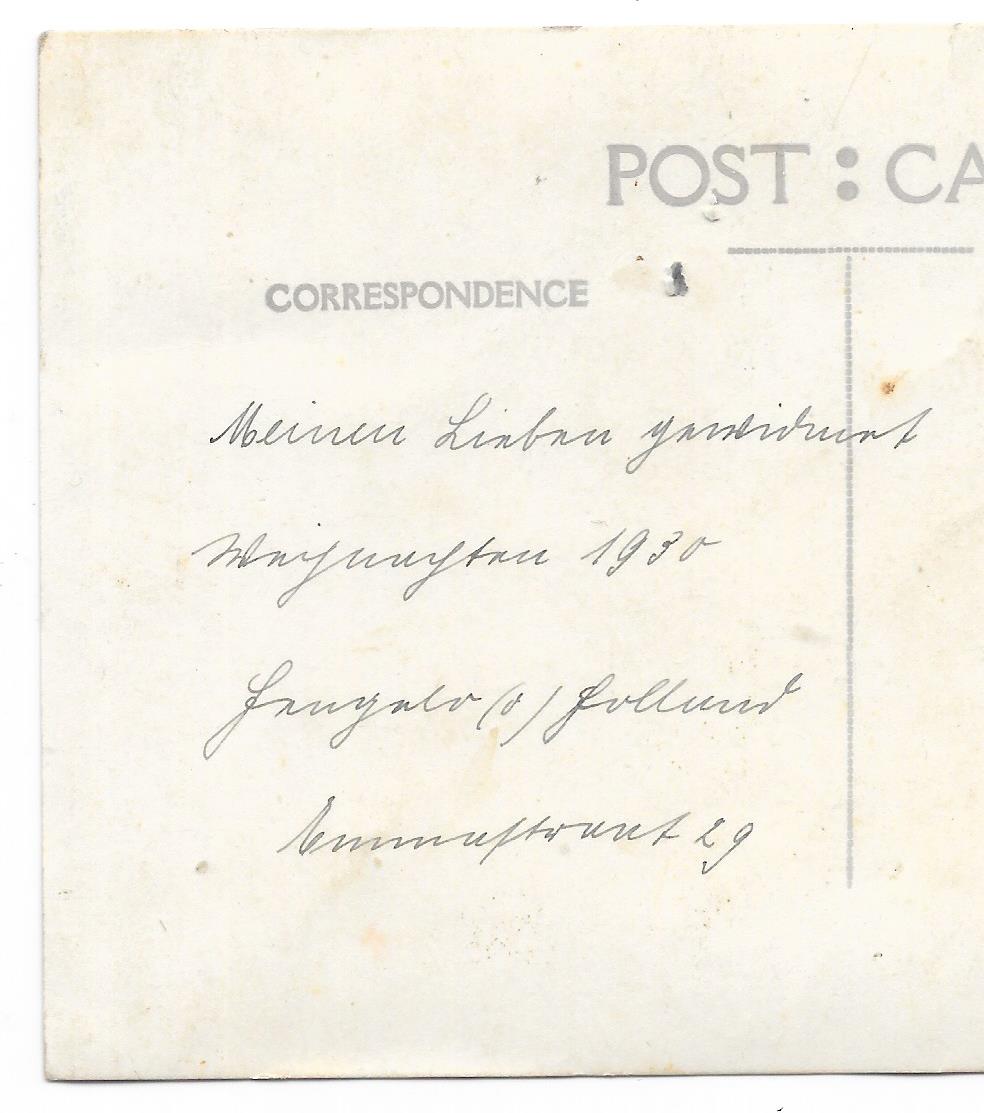 POST : CA
CORRESPONDENCE
Meinen Lieben gewidmet
Weihnachten 1930
Hengelo (o) Holland
Emmastraat 29